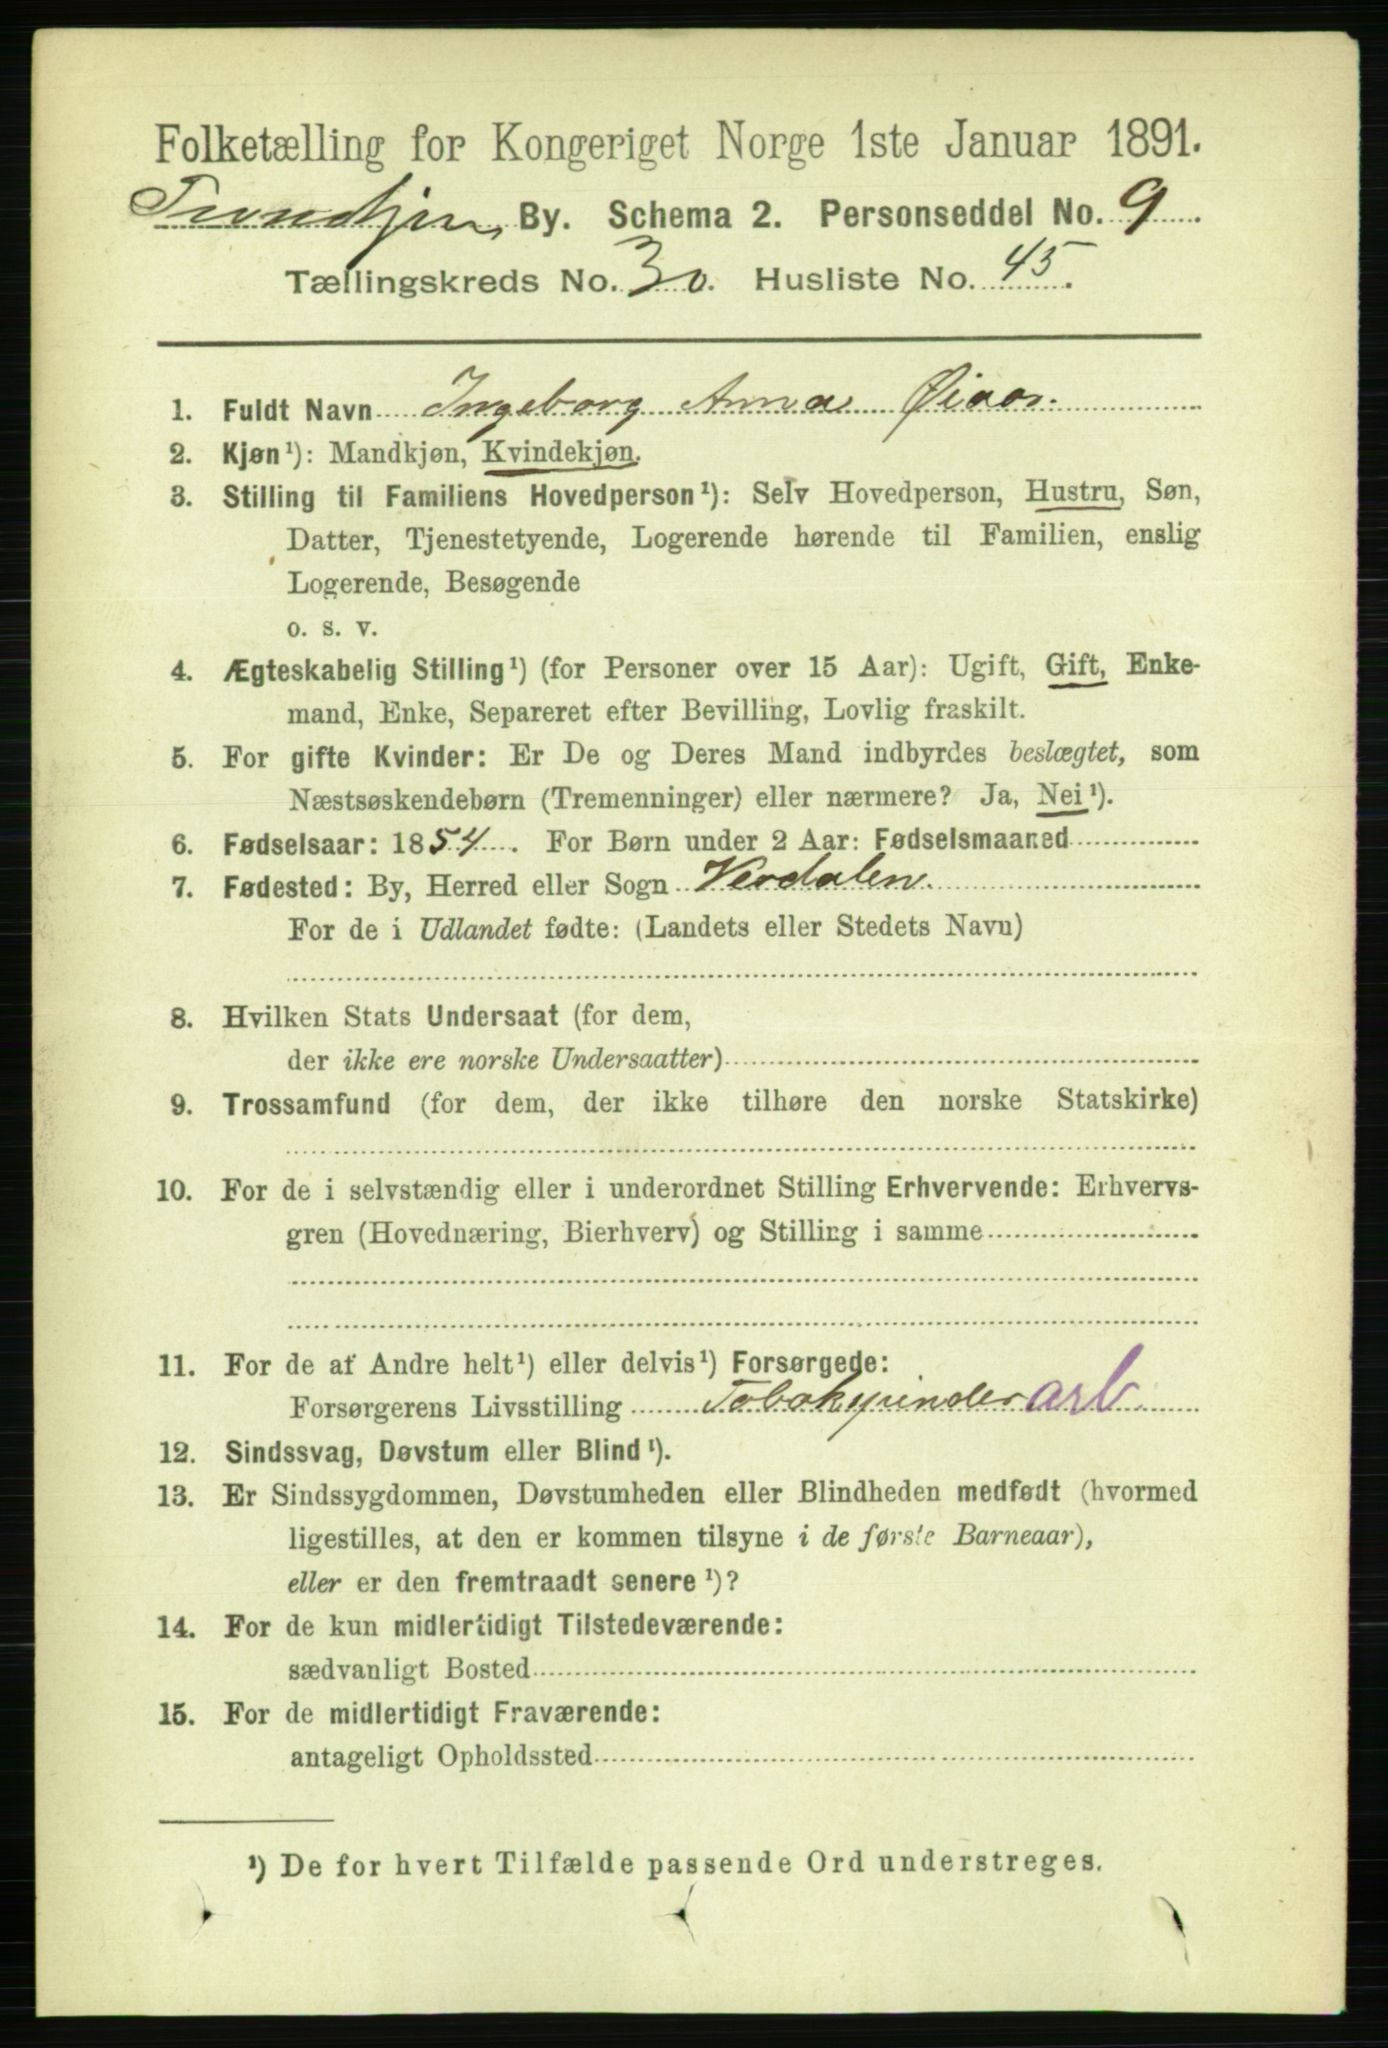 Folketælling for Kongeriget Norge 1ste Januar 1891.
Trondhjem By. Schema 2. Personseddel No. 9.
Tællingskreds No. 30. Husliste No. 45.
1. Fuldt Navn Ingeborg Anna Øiaas.
2. Kjøn¹): Mandkjøn, Kvindekjøn.
3. Stilling til Familiens Hovedperson¹): Selv Hovedperson, Hustru, Søn,
Datter, Tjenestetyende, Logerende hørende til Familien, enslig
Logerende, Besøgende
o. s. v.
4. Ægteskabelig Stilling¹) (for Personer over 15 Aar): Ugift, Gift, Enke-
mand, Enke, Separeret efter Bevilling, Lovlig fraskilt.
5. For gifte Kvinder: Er De og Deres Mand indbyrdes beslægtet, som
Næstsøskendebørn (Tremenninger) eller nærmere? Ja, Nei¹).
6. Fødselsaar: 1854. For Børn under 2 Aar: Fødselsmaaned
7. Fødested: By, Herred eller Sogn Verdalen.
For de i Udlandet fødte: (Landets eller Stedets Navn)
8. Hvilken Stats Undersaat (for dem,
der ikke ere norske Undersaatter)
9. Trossamfund (for dem, der ikke tilhøre den norske Statskirke)
10. For de i selvstændig eller i underordnet Stilling Erhvervende: Erhvervs-
gren (Hovednæring, Bierhverv) og Stilling i samme
11. For de af Andre helt¹) eller delvis¹) Forsørgede:
Forsørgerens Livsstilling Tobakspinder arb.
12. Sindssvag, Døvstum eller Blind¹).
13. Er Sindssygdommen, Døvstumheden eller Blindheden medfødt (hvormed
ligestilles, at den er kommen tilsyne i de første Barneaar),
eller er den fremtraadt senere¹)?
14. For de kun midlertidigt Tilstedeværende:
sædvanligt Bosted
15. For de midlertidigt Fraværende:
antageligt Opholdssted
¹) De for hvert Tilfælde passende Ord understreges.